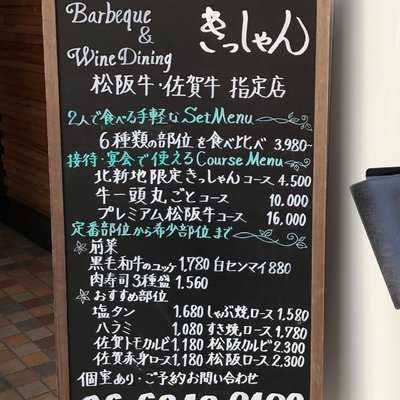 Barbeque
&
Wine Dining
きっしゃん
松阪牛・佐賀牛 指定店
2人で食べる手軽なSetMenu
6種類の部位を食べ比べ 3,980~
接待・宴会で使えるCourse Menu
北新地限定きっしゃんコース 4,500
牛一頭丸ごとコース 10,000
プレミアム松阪牛コース 16,000
定番部位から希少部位まで
※前菜
黒毛和牛のユッケ 1,780 白センマイ 880
肉寿司3種盛 1,560
※おすすめ部位
塩タン 1,680 しゃぶ焼ロース 1,580
ハラミ 1,080 すき焼ロース 1,780
佐賀トモカルビ 1,180 松阪カルビ 2,300
佐賀赤身ロース 1,180 松阪ロース 2,300
個室あり・ご予約お問い合わせ